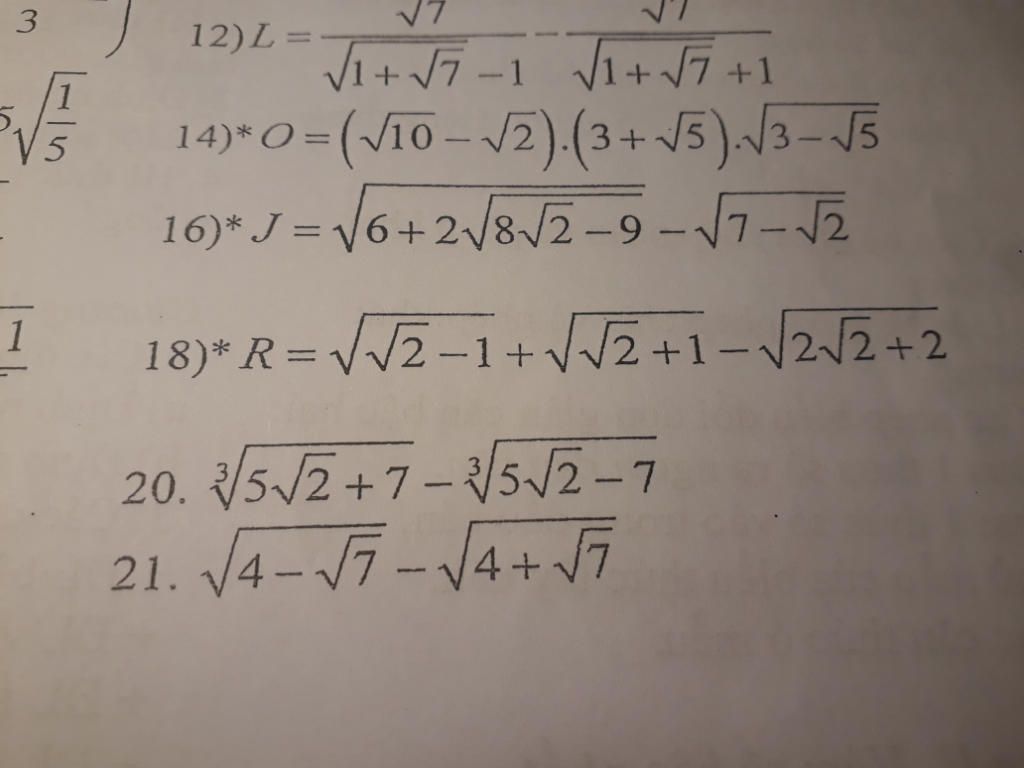 3 )
12) L = √7/(√(1+√7) −1) − √7/(√(1+√7) +1)
5√(1/5)
14)* O = (√10 − √2).(3+√5).√(3−√5)
16)* J = √(6+2√(8√2−9)) − √(7−√2)
1
18)* R = √(√2−1) + √(√2+1) − √(2√2+2)
20. ∛(5√2+7) − ∛(5√2−7)
21. √(4−√7) − √(4+√7)